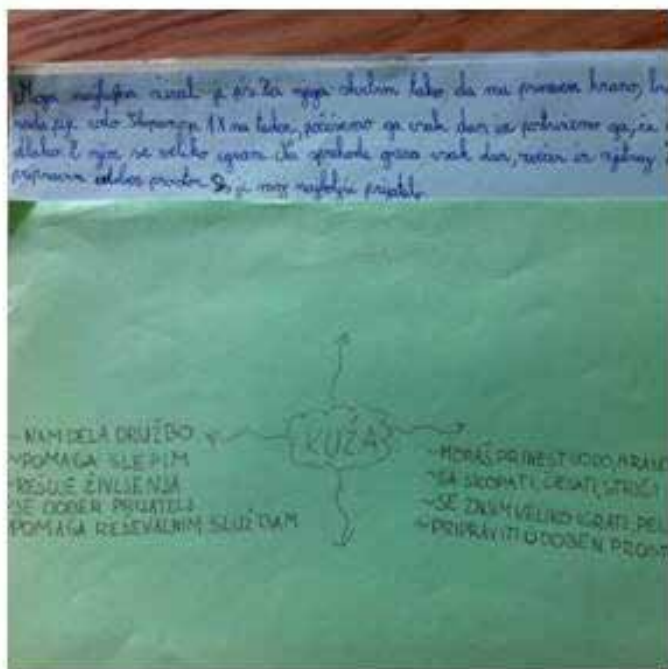 Moja najljubša žival je pes. Za njega skrbim tako da mu prinesem hrano,
rada pije vodo 1X na teden, počešemo ga vsak dan in
dlako. Z njim se veliko igram. Na sprehode grava vsak dan, zvečer in zjutraj.
pripravim udoben prostor. je moj najboljši prijatelj.
KUŽA
~NAM DELA DRUŽBO
~POMAGA SLEPIM
~REŠUJE ŽIVLJENJA
~JE DOBER PRIJATELJ
POMAGA REŠEVALNIM SLUŽBAM
~MORAŠ PRINEST VODO, HRANO
~GA SKOPATI, ČESATI, STRIČI
~SE Z NJIM VELIKO IGRATI,
~PRIPRAVITI UDOBEN PROST